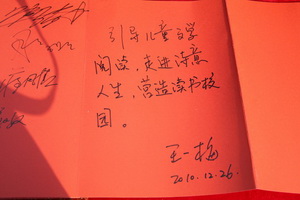 引导儿童文学
阅读，走进诗意
人生，营造读书校
园。
王一梅
2010.12.26.